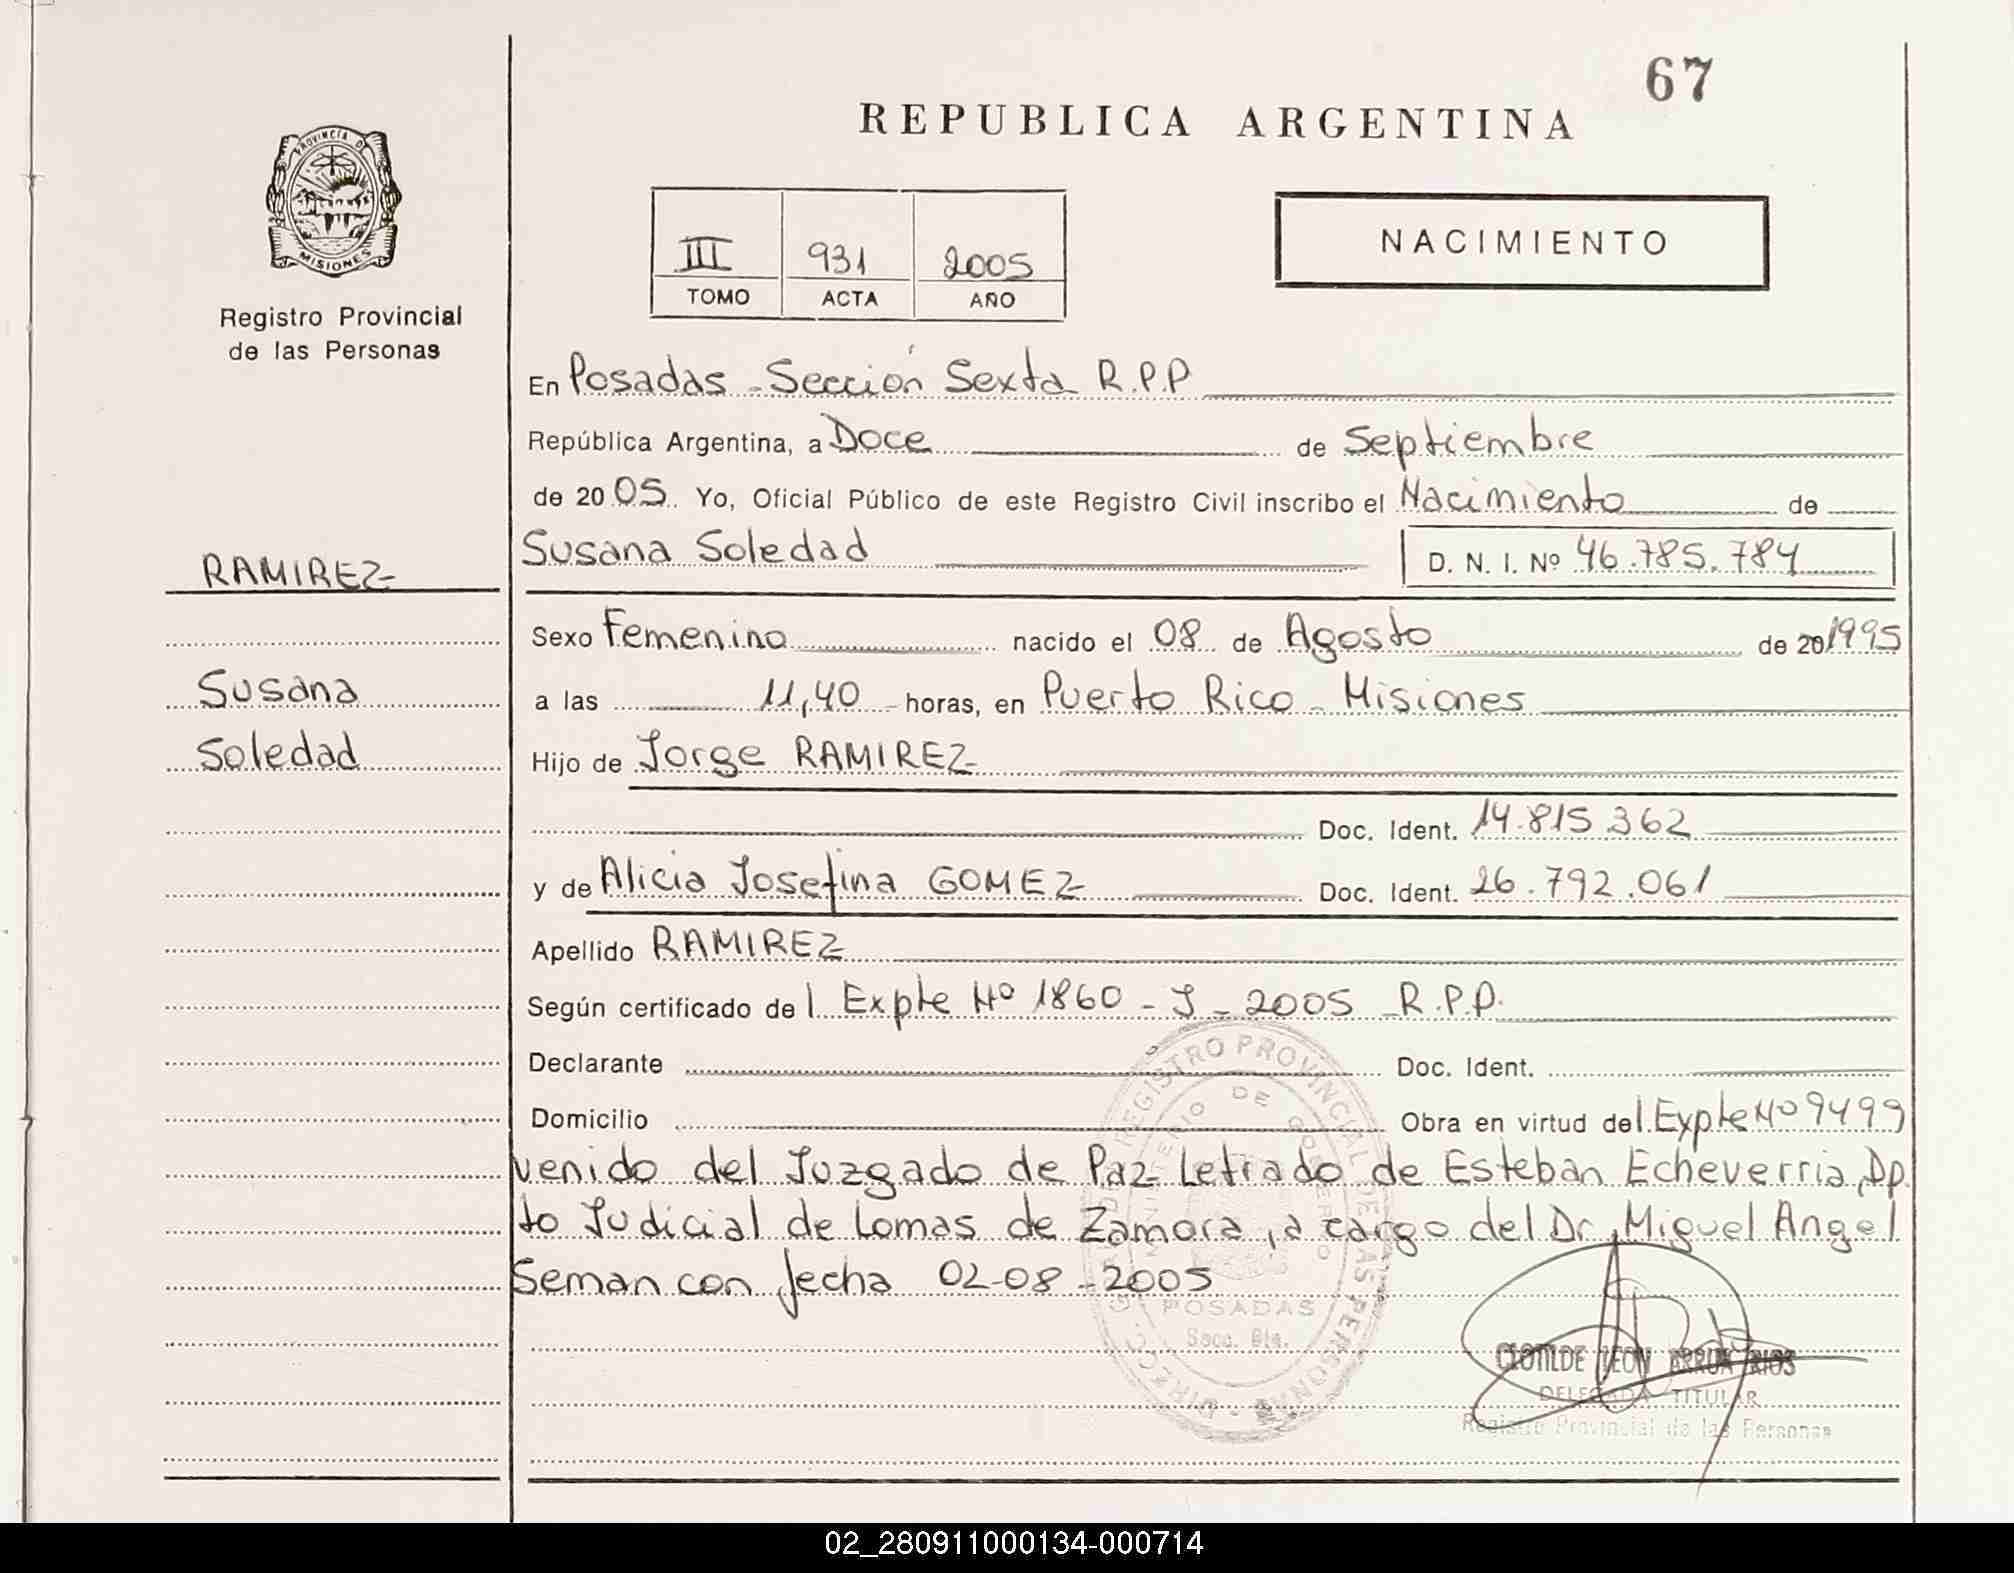 67
REPUBLICA ARGENTINA
PROVINCIA DE
MISIONES
Registro Provincial
de las Personas
III 931 2005
TOMO ACTA AÑO
NACIMIENTO
En Posadas - Sección Sexta R.P.P
República Argentina, a Doce de Septiembre
de 2005. Yo, Oficial Público de este Registro Civil inscribo el Nacimiento de
RAMIREZ
Susana Soledad D. N. I. Nº 46.785.784
Sexo Femenino nacido el 08 de Agosto de 20 1995
Susana
a las 11,40 horas, en Puerto Rico - Misiones
Soledad
Hijo de Jorge RAMIREZ
Doc. Ident. 14.815.362
y de Alicia Josefina GOMEZ Doc. Ident. 26.792.061
Apellido RAMIREZ
Según certificado del Expte Nº 1860 - J - 2005 R.P.P.
Declarante Doc. Ident.
Domicilio Obra en virtud del Expte Nº 9499
venido del Juzgado de Paz Letrado de Esteban Echeverria, Dp
to Judicial de Lomas de Zamora, a cargo del Dr. Miguel Angel
Seman con fecha 02-08-2005
DIRECC. GRAL. DEL REGISTRO PROVINCIAL DE LAS PERSONAS
MINISTERIO DE GOBIERNO
POSADAS
Secc. 6ta.
CLOTILDE LEON ARRUA RIOS
DELEGADA TITULAR
Registro Provincial de las Personas
02_280911000134-000714